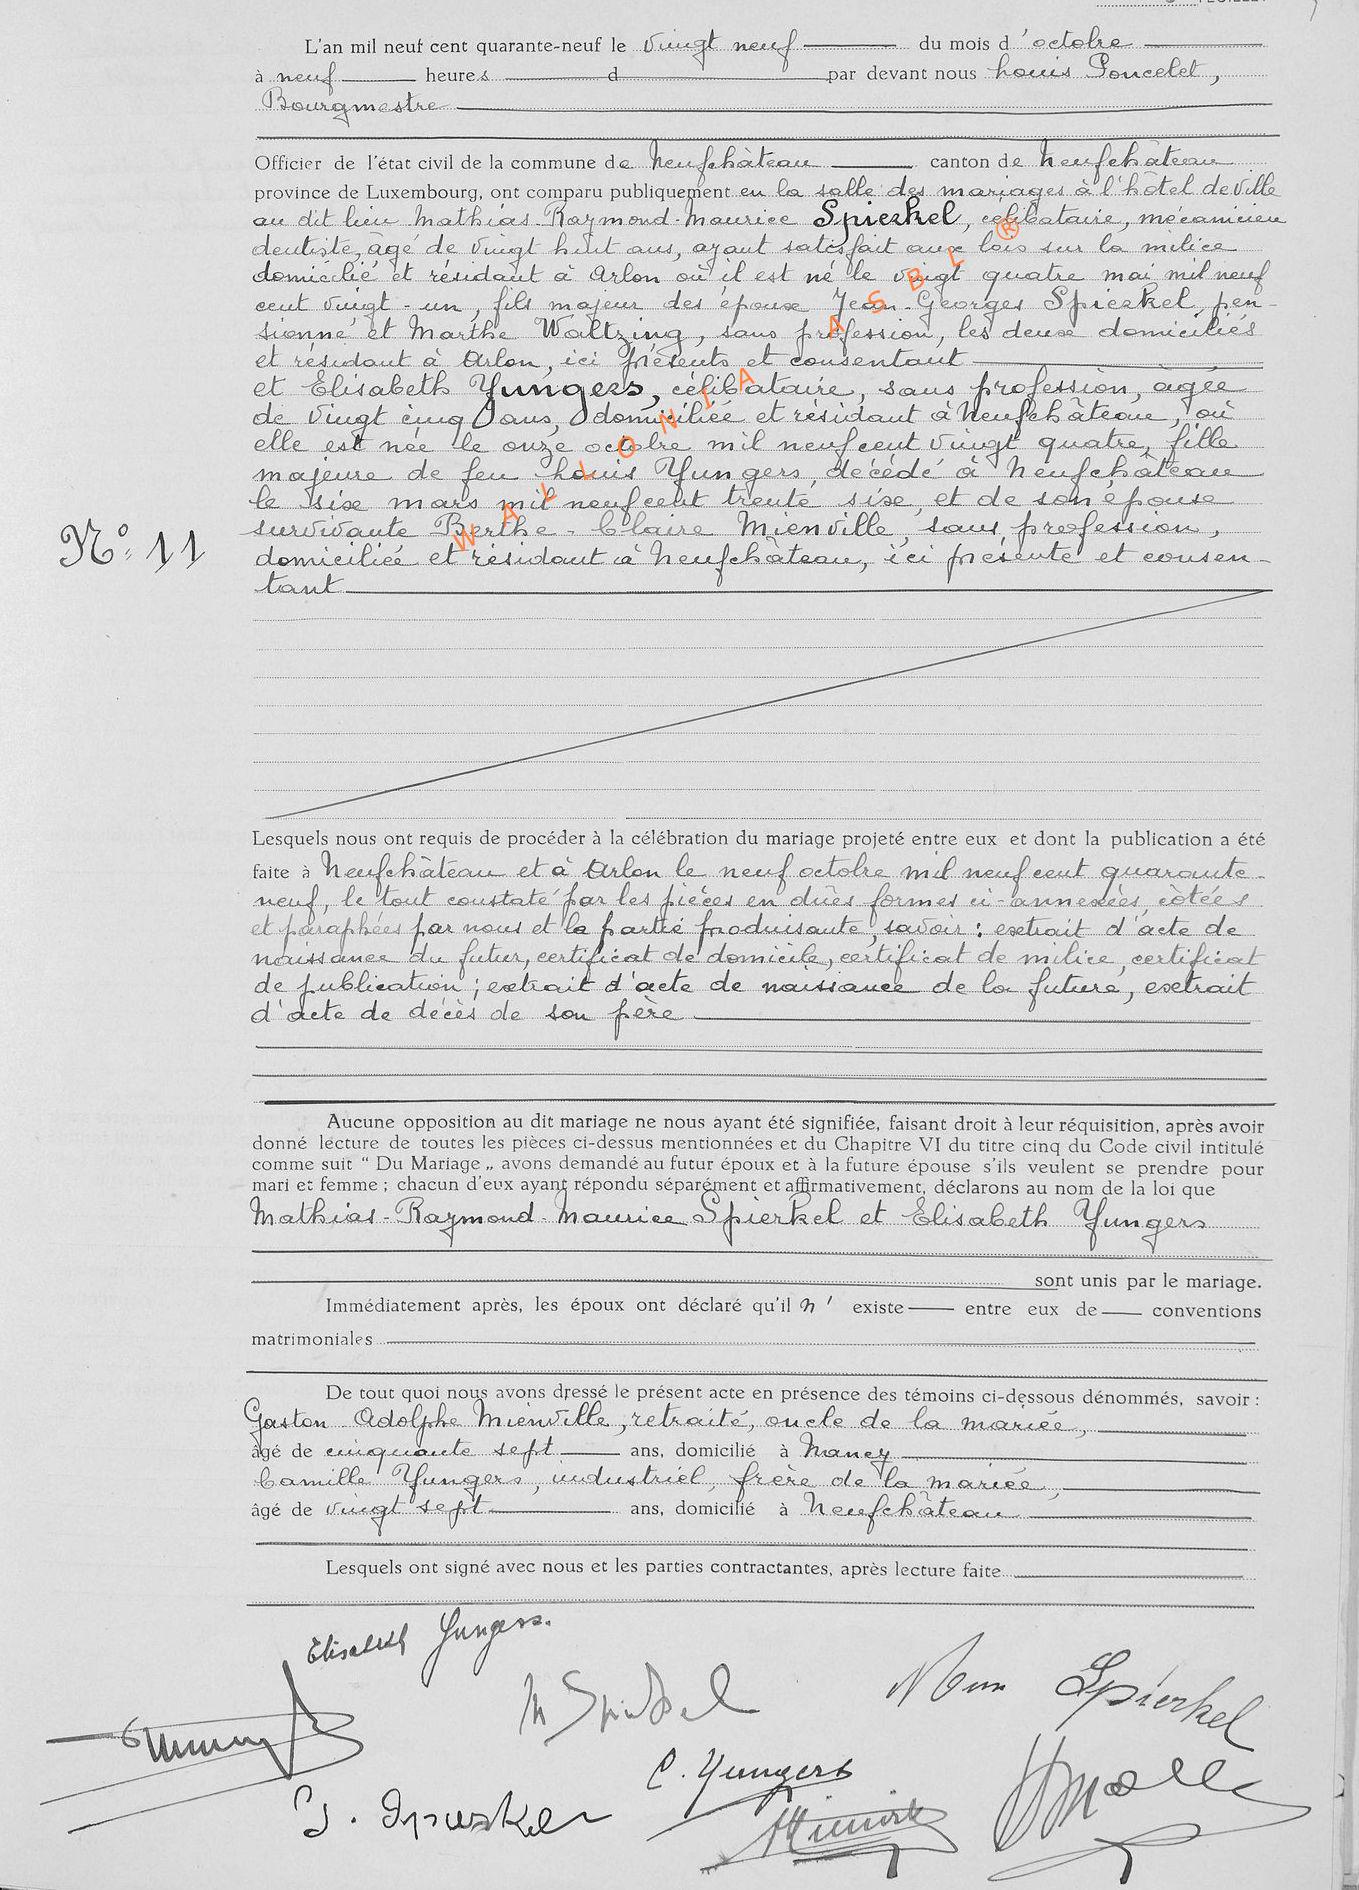 L'an mil neuf cent quarante-neuf le vingt neuf du mois d'octobre
à neuf heures d par devant nous Louis Poncelet,
Bourgmestre
Officier de l'état civil de la commune de Neufchâteau canton de Neufchâteau
province de Luxembourg, ont comparu publiquement en la salle des mariages à l'hôtel de ville
au dit lieu Mathias-Raymond-Maurice Spierkel, célibataire, mécanicien
dentiste, âgé de vingt huit ans, ayant satisfait aux lois sur la milice
domicilié et résidant à Arlon où il est né le vingt quatre mai mil neuf
cent vingt-un, fils majeur des époux Jean-Georges Spierkel, pen-
sionné et Marthe Waltzing, sans profession, les deux domiciliés
et résidant à Arlon, ici présents et consentant
et Elisabeth Yungers, célibataire, sans profession, âgée
de vingt cinq ans, domiciliée et résidant à Neufchâteau, où
elle est née le onze octobre mil neuf cent vingt quatre, fille
majeure de feu Louis Yungers, décédé à Neufchâteau
le six mars mil neuf cent trente six, et de son épouse
survivante Berthe-Claire Mienville, sans profession,
N° 11
domiciliée et résidant à Neufchâteau, ici présente et consen-
tant
WALLONIA ASBL ®
Lesquels nous ont requis de procéder à la célébration du mariage projeté entre eux et dont la publication a été
faite à Neufchâteau et à Arlon le neuf octobre mil neuf cent quarante-
neuf, le tout constaté par les pièces en dûes formes ci-annexées, côtées
et paraphées par nous et la partie produisante, savoir : extrait d'acte de
naissance du futur, certificat de domicile, certificat de milice, certificat
de publication ; extrait d'acte de naissance de la future, extrait
d'acte de décès de son père
Aucune opposition au dit mariage ne nous ayant été signifiée, faisant droit à leur réquisition, après avoir
donné lecture de toutes les pièces ci-dessus mentionnées et du Chapitre VI du titre cinq du Code civil intitulé
comme suit “ Du Mariage „ avons demandé au futur époux et à la future épouse s'ils veulent se prendre pour
mari et femme ; chacun d'eux ayant répondu séparément et affirmativement, déclarons au nom de la loi que
Mathias-Raymond-Maurice Spierkel et Elisabeth Yungers
sont unis par le mariage.
Immédiatement après, les époux ont déclaré qu'il n' existe entre eux de conventions
matrimoniales
De tout quoi nous avons dressé le présent acte en présence des témoins ci-dessous dénommés, savoir :
Gaston Adolphe Mienville, retraité, oncle de la mariée,
âgé de cinquante sept ans, domicilié à Nancy
Camille Yungers, industriel, frère de la mariée,
âgé de vingt sept ans, domicilié à Neufchâteau
Lesquels ont signé avec nous et les parties contractantes, après lecture faite
Elisabeth Yungers.
M Spierkel
Spierkel
C. Yungers
J. Spierkel